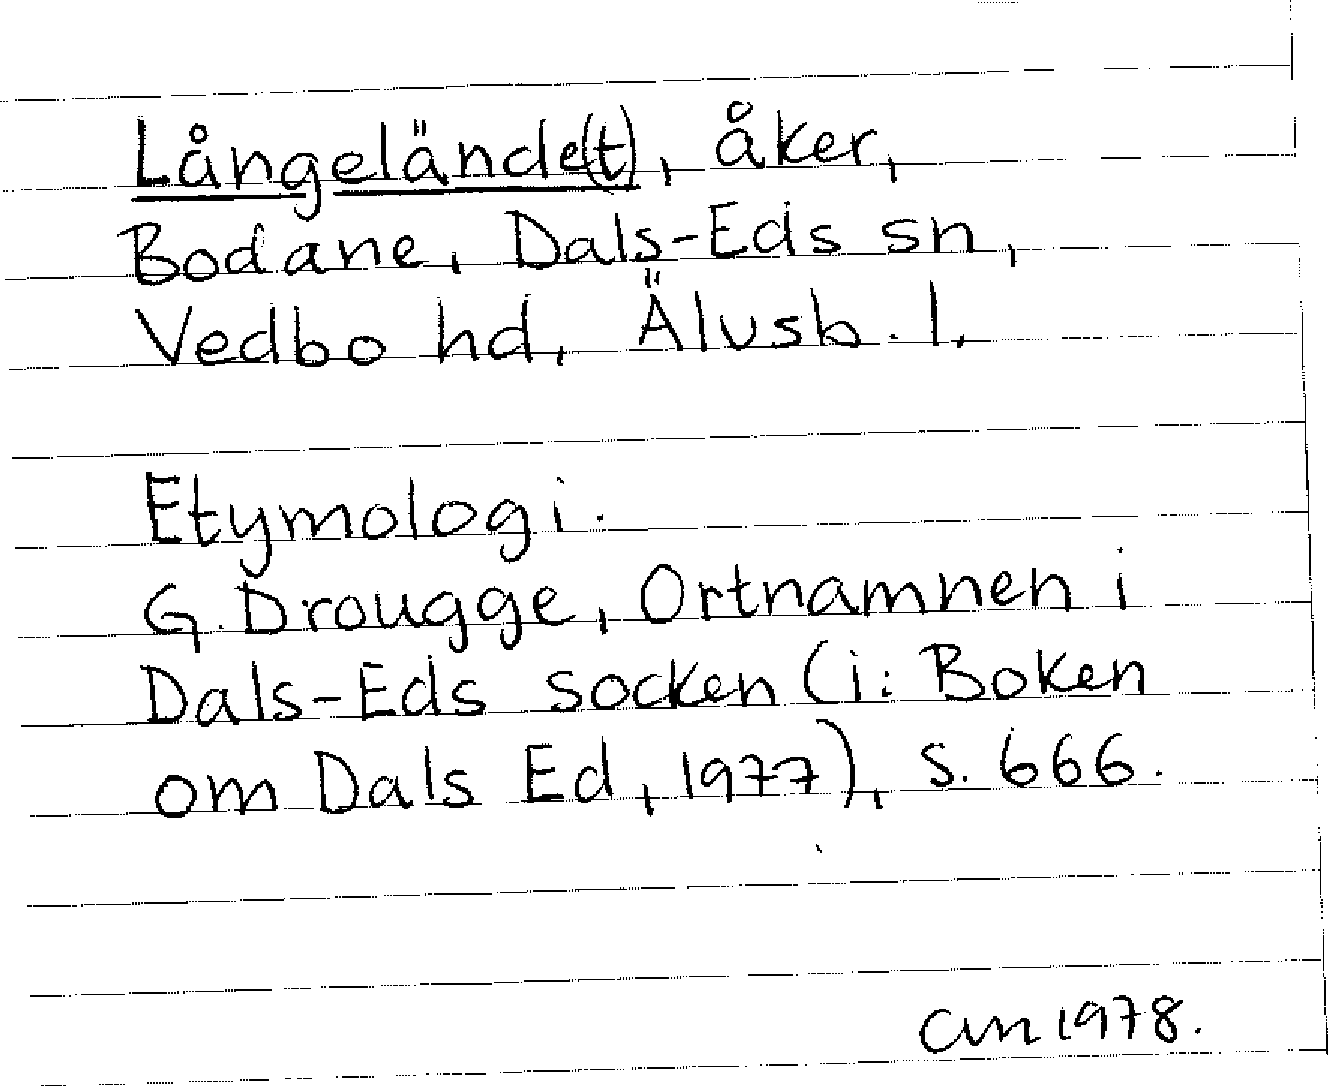 Långelände(t), åker,
Bodane, Dals-Eds sn,
Vedbo hd, Älvsb. l.
Etymologi.
G. Drougge, Ortnamnen i
Dals-Eds socken (i: Boken
om Dals Ed, 1977), s. 666.
1978.